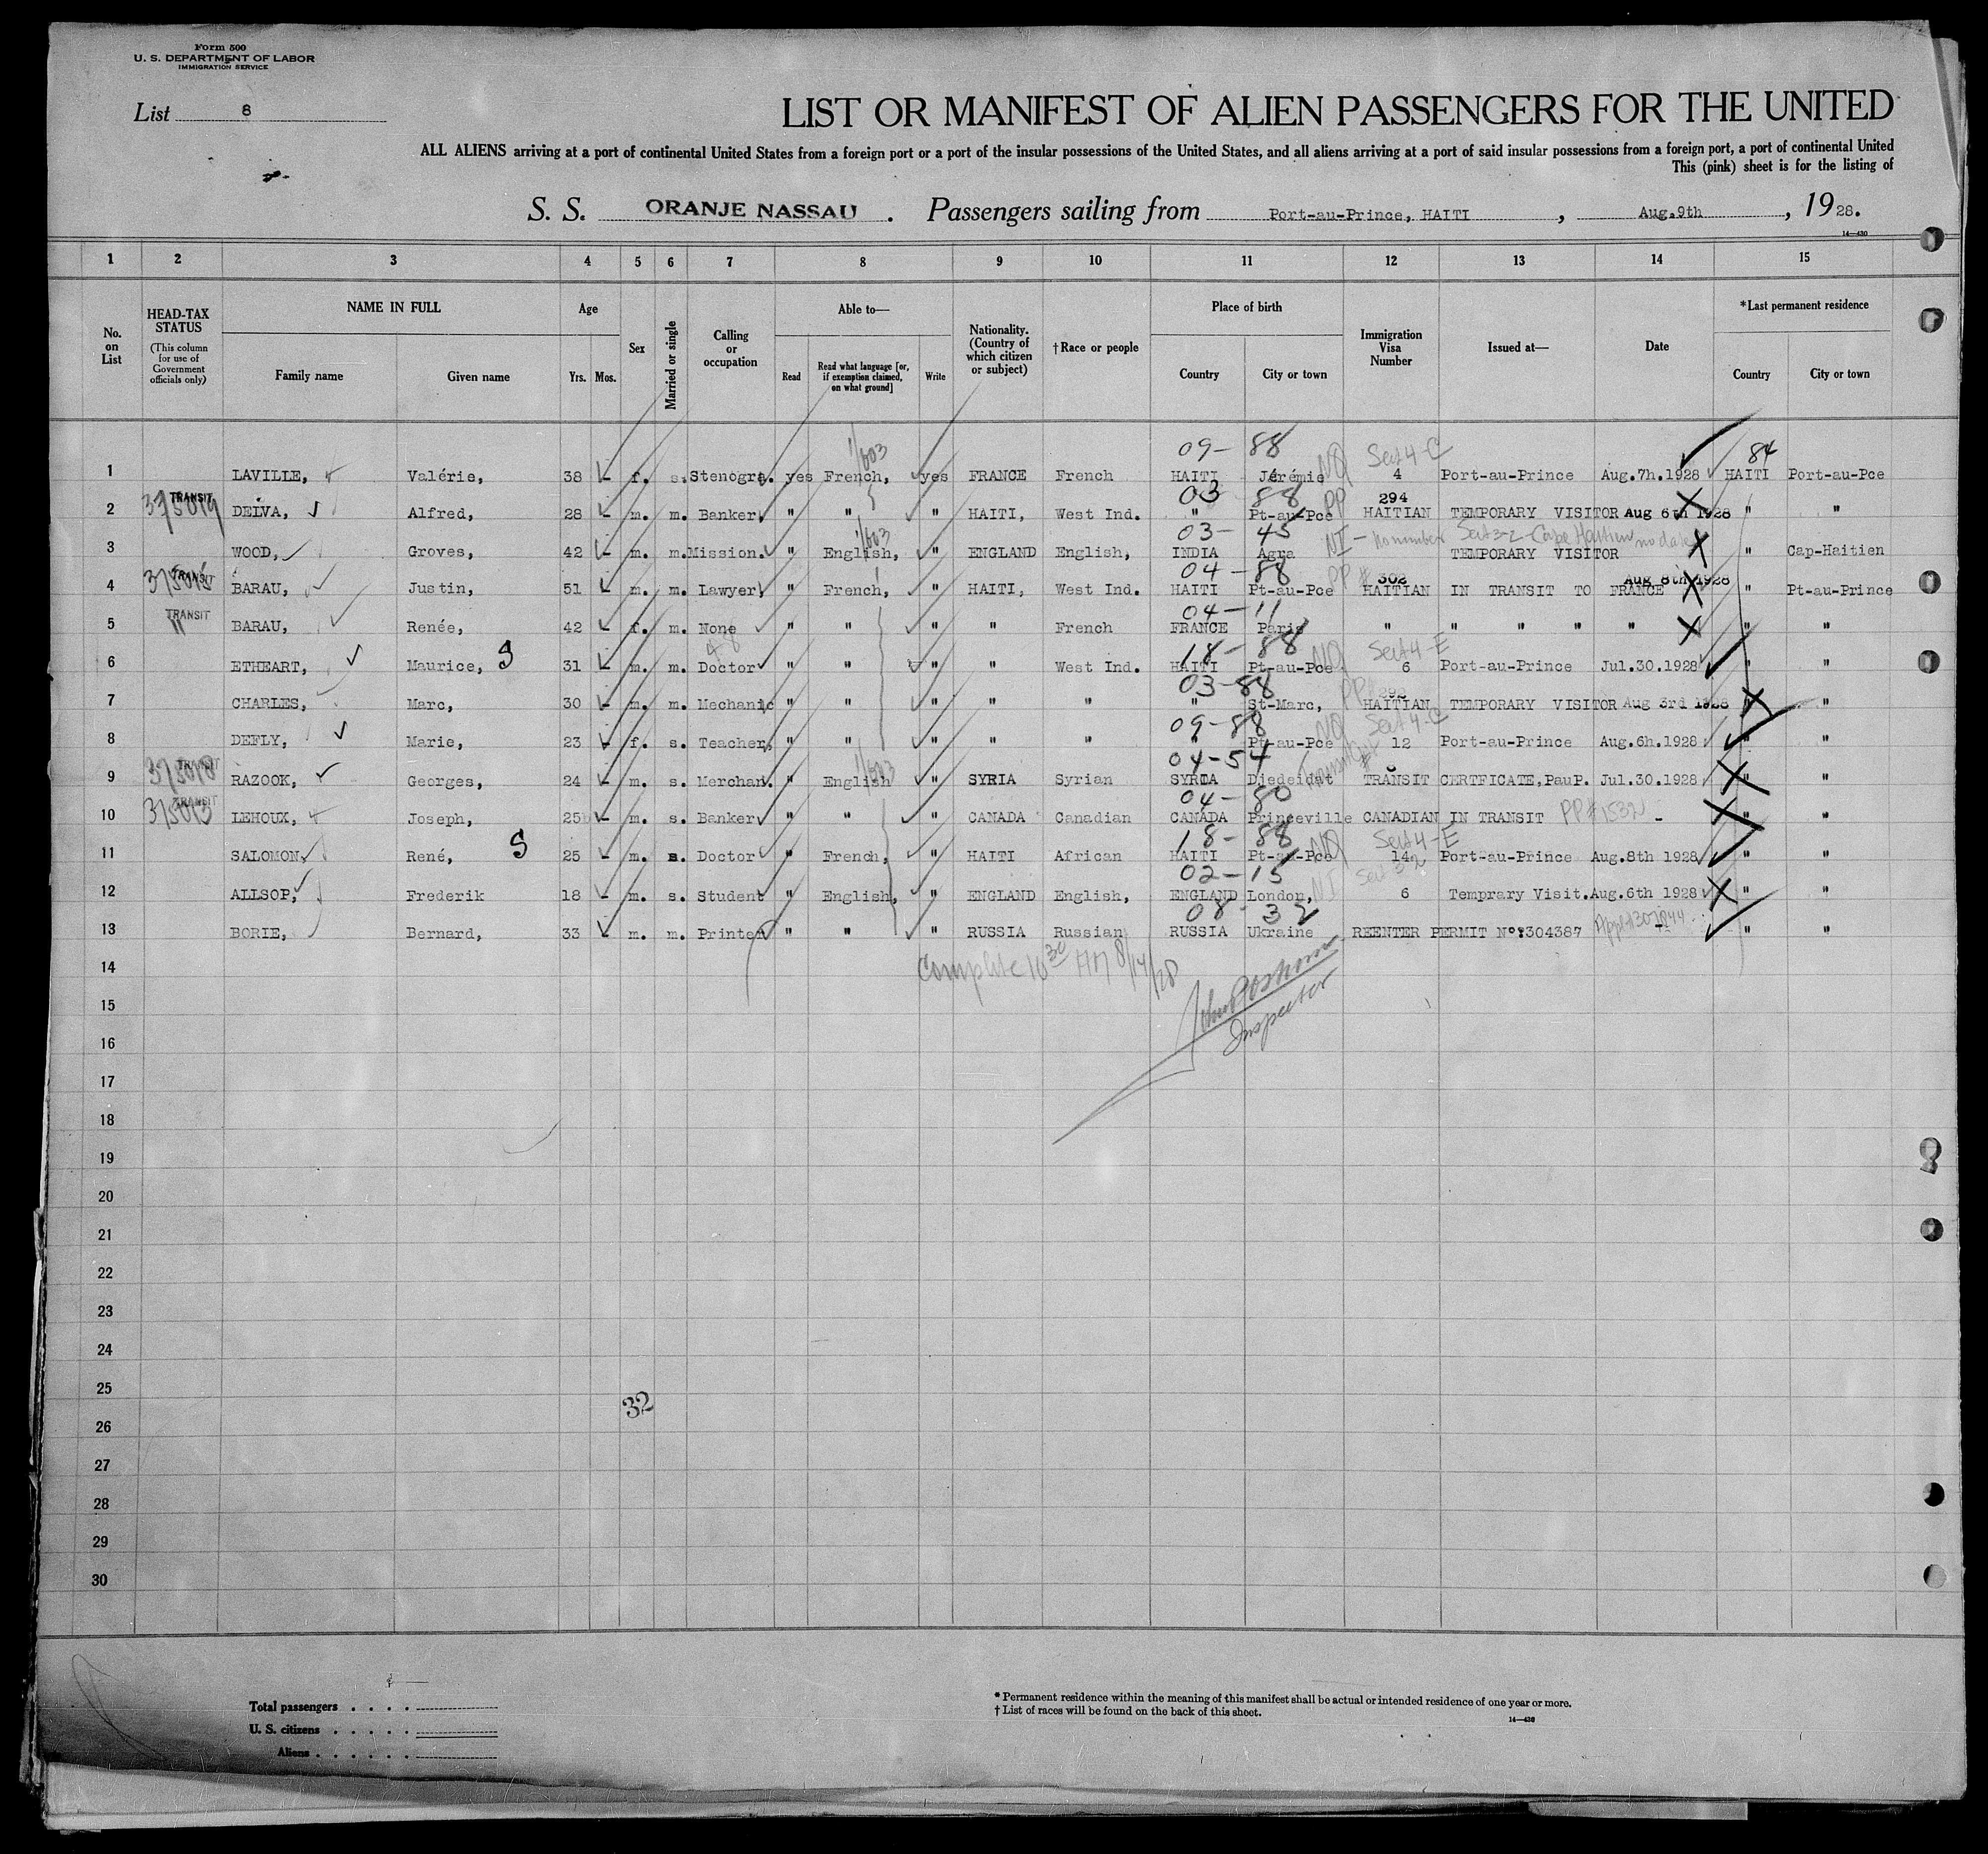 Form 500
U. S. DEPARTMENT OF LABOR
IMMIGRATION SERVICE
List 8
LIST OR MANIFEST OF ALIEN PASSENGERS FOR THE UNITED
ALL ALIENS arriving at a port of continental United States from a foreign port or a port of the insular possessions of the United States, and all aliens arriving at a port of said insular possessions from a foreign port, a port of continental United
This (pink) sheet is for the listing of
S. S. ORANJE NASSAU. Passengers sailing from Port-au-Prince, HAITI, Aug.9th, 1928.
14—430
1 2 3 4 5 6 7 8 9 10 11 12 13 14 15
No. on List
HEAD-TAX STATUS (This column for use of Government officials only)
NAME IN FULL Family name Given name
Age Yrs. Mos.
Sex
Married or single
Calling or occupation
Able to— Read Read what language [or, if exemption claimed, on what ground] Write
Nationality. (Country of which citizen or subject)
†Race or people
Place of birth Country City or town
Immigration Visa Number
Issued at—
Date
*Last permanent residence Country City or town
09- 88 NQ Sect 4-C 84
1 LAVILLE, Valérie, 38 - f. s. Stenogra. yes French, yes FRANCE French HAITI Jérémie 4 Port-au-Prince Aug.7h.1928 HAITI Port-au-Pce
TRANSIT 03 88 PP 294
2 DEIVA, Alfred, 28 - m. m. Banker, " " " HAITI, West Ind. " Pt-au-Pce HAITIAN TEMPORARY VISITOR Aug 6th 1928 " "
03- 45 NI - No number Sect 3-2 Cape Haitien no date
3 WOOD, Groves, 42 - m. m. Mission. " English, " ENGLAND English, INDIA Agra TEMPORARY VISITOR " Cap-Haitien
TRANSIT 04- 88 PP# 302 Aug 8th 1928
4 BARAU, Justin, 51 - m. m. Lawyer, " French, " HAITI, West Ind. HAITI Pt-au-Pce HAITIAN IN TRANSIT TO FRANCE " Pt-au-Prince
TRANSIT 04-11
5 " BARAU, Renée, 42 - f. m. None " " " " French FRANCE Paris " " " " " " "
18-88 NQ Sect 4-E
6 ETHEART, Maurice, S 31 - m. m. Doctor " " " " West Ind. HAITI Pt-au-Pce 6 Port-au-Prince Jul.30.1928 " "
03-88 PP
7 CHARLES, Marc, 30 - m. m. Mechanic " " " " " " St-Marc, HAITIAN TEMPORARY VISITOR Aug 3rd 1928 " "
09-88 NQ Sect 4-C
8 DEFLY, Marie, 23 - f. s. Teacher, " " " " " " Pt-au-Pce 12 Port-au-Prince Aug.6h.1928 " "
TRANSIT 04-54
9 RAZOOK, Georges, 24 - m. s. Merchan. " English " SYRIA Syrian SYRIA Djedeidat TRANSIT CERTFICATE,PauP. Jul.30.1928 " "
TRANSIT 04-80
10 LEHOUX, Joseph, 25 - m. s. Banker " " " CANADA Canadian CANADA Princeville CANADIAN IN TRANSIT PP#1532 - " "
18-88 NQ Sect 4-E
11 SALOMON, René, S 25 - m. s. Doctor " French, " HAITI African HAITI Pt-au-Pce 14 Port-au-Prince Aug.8th 1928 " "
02-15 NI Sect 3-2
12 ALLSOP, Frederik 18 - m. s. Student " English, " ENGLAND English, ENGLAND London, 6 Temprary Visit. Aug.6th 1928 " "
08-32
13 BORIE, Bernard, 33 - m. m. Printer " " " RUSSIA Russian RUSSIA Ukraine REENTER PERMIT Nº:304387 - " "
14 Complete 10 30 AM 8/14/28
15
16 Inspector
17
18
19
20
21
22
23
24
25
32
26
27
28
29
30
Total passengers
U. S. citizens
Aliens
* Permanent residence within the meaning of this manifest shall be actual or intended residence of one year or more.
† List of races will be found on the back of this sheet.
14—430